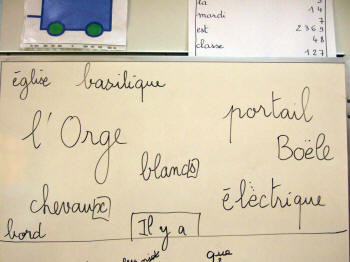 la
14
mardi
7
est 2369
48
classe
127
église basilique
portail
l'Orge
Boële
blancs
chevaux
électrique
bord
Il y a
que